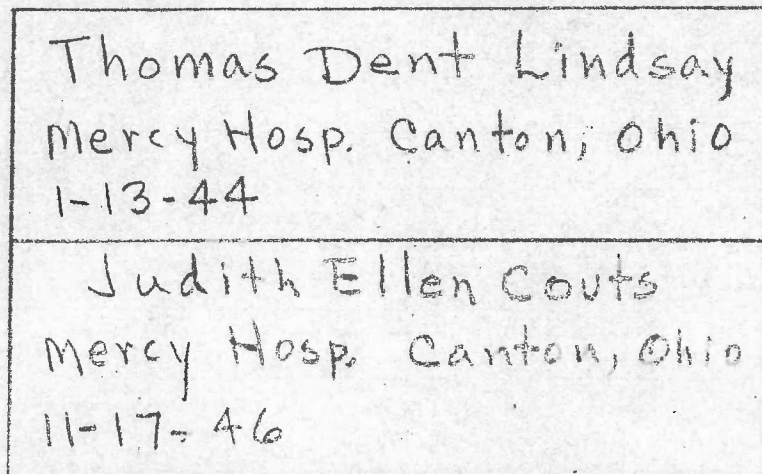 Thomas Dent Lindsay
Mercy Hosp. Canton, Ohio
1-13-44
Judith Ellen Couts
Mercy Hosp. Canton, Ohio
11-17-46